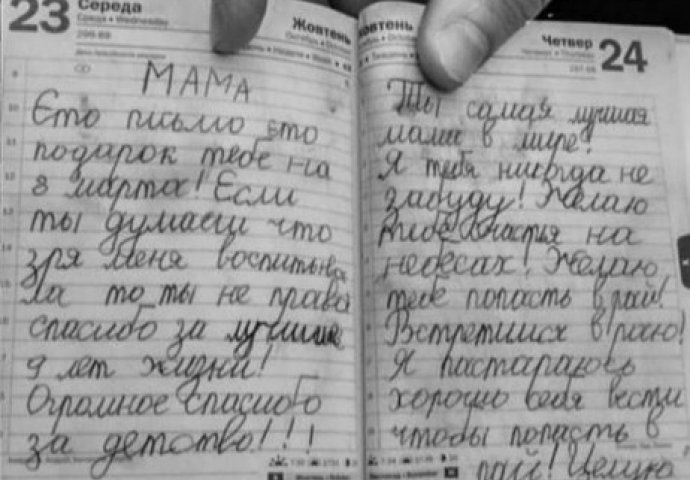 23 Середа
Среда • Wednesday
Жовтень
МАМА
Єто письмо єто
подарок тебе на
8 марта! Если
ты думаеш что
зря меня воспитыва
ла то ты не права
спасибо за лучшие
9 лет жизни!
Огромное спасибо
за детство!!!
Жовтень
Четвер 24
Четверг • Thursday
Ты самая лучшая
мама в мире!
Я тебя никогда не
забуду! Желаю
тебе счастья на
небесах! Желаю
тебе попасть в рай!
Встретимся в раю!
Я пастараюсь
хорошо себя вести
чтобы попасть в
рай! Целую